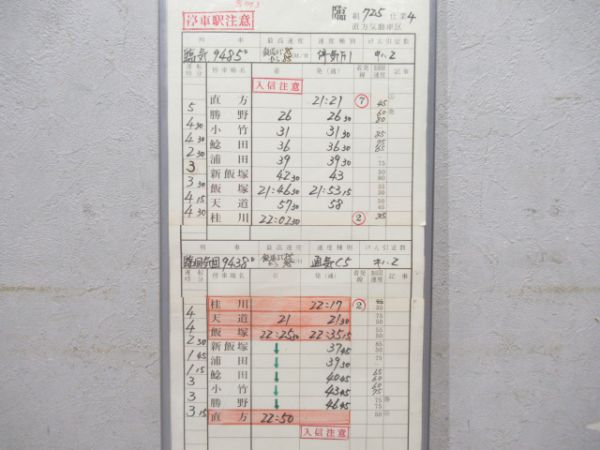 停車駅注意
臨 組 725 仕業 4
直方気動車区
列車 最高速度 速度種別 けん引定数
臨気 9485D KM/H 停気 相.2
運転時分 停車場名 着 発(通) 着発線 制限速度 記事
入信注意
直方 21:21 ⑦
5 45
勝野 26 26 30 60 80
4 30
小竹 31 31 30
4 30
鯰田 36 36 30
2 30
浦田 39 39 30
3
新飯塚 42 30 43
3 30
飯塚 21:46 30 21:53 15
4 15
天道 57 30 58
4 30
桂川 22:02 30 ② 35
列車 最高速度 速度種別 けん引定数
9438D 通気C5 相.2
運転時分 停車場名 着 発(通) 着発線 制限速度 記事
桂川 22:17 ②
4
天道 21 21 30
4
飯塚 22:25 30 22:35 15
2 30
新飯塚 ↓ 37 45
1 45
浦田 ↓ 39 30
1 15
鯰田 ↓ 40 45
3
小竹 ↓ 43 45
3
勝野 ↓ 46 45
3 15
直方 22:50
入信注意